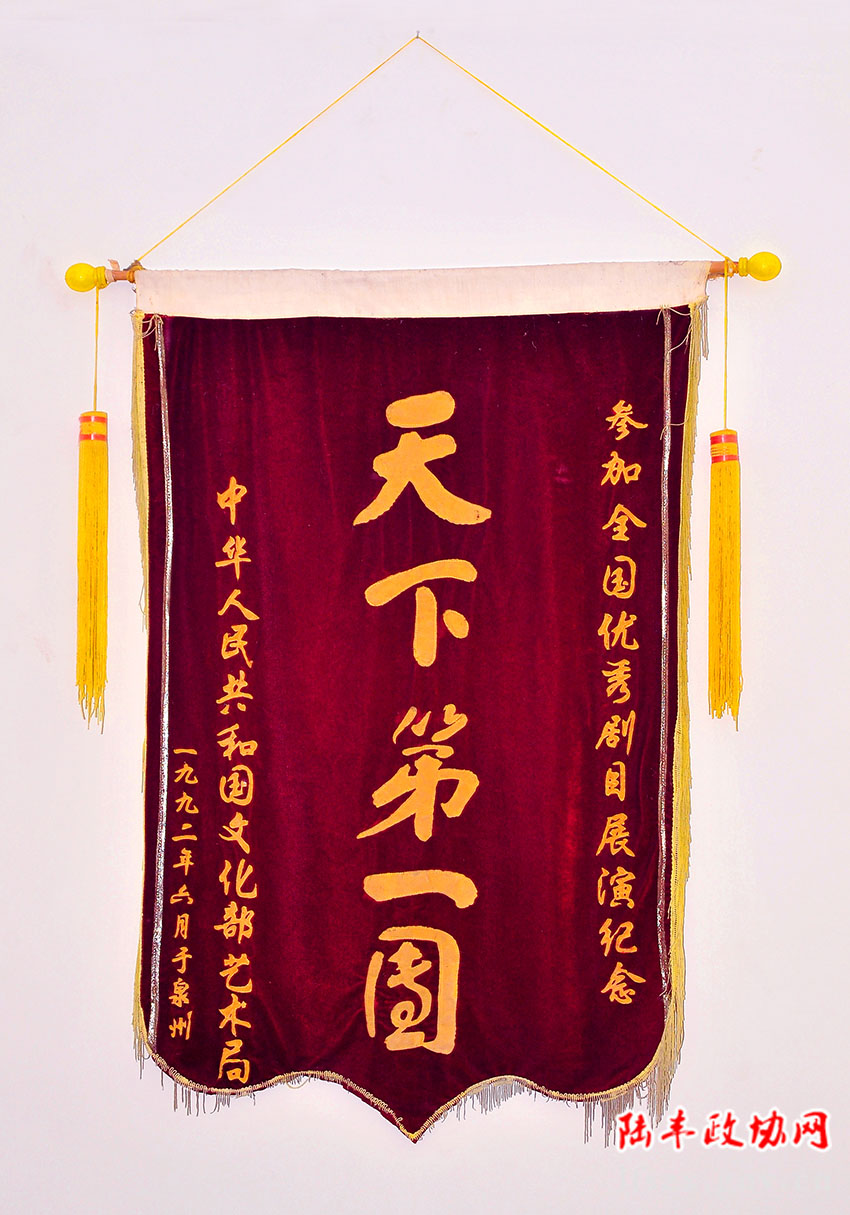 参加全国优秀剧目展演纪念
天下第一團
中华人民共和国文化部艺术局
一九九二年六月于泉州
陆丰政协网